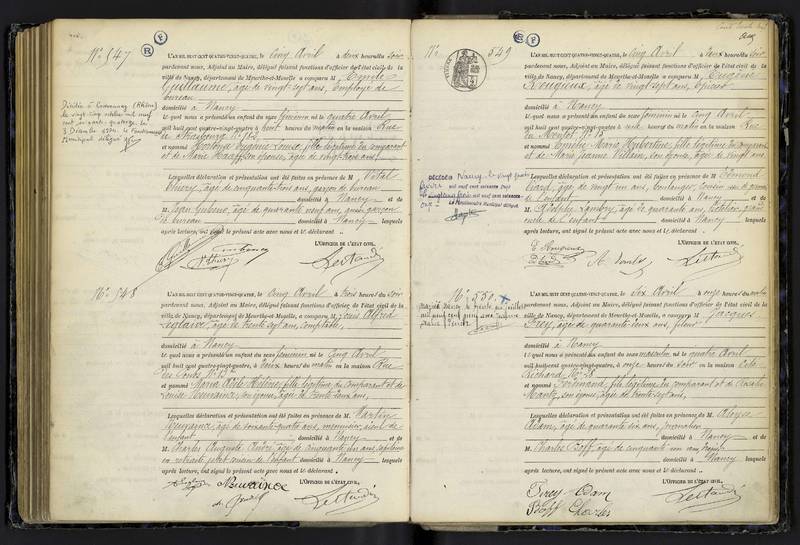 N° 547
L'AN MIL HUIT CENT QUATRE-VINGT-QUATRE, le Cinq Avril à deux heures du Soir
pardevant nous, Adjoint au Maire, délégué faisant fonctions d'officier de l'état civil de la
ville de Nancy, département de Meurthe-et-Moselle a comparu M Emile
Guillaume, âgé de vingt-sept ans, Employé de
bureau
domicilié à Nancy
lequel nous a présenté un enfant du sexe féminin né le quatre Avril
mil huit cent quatre-vingt-quatre à huit heures du matin en la maison Rue
de Strasbourg N° 162
et nommé Hortense Eugénie Louise, fille légitime du comparant
et de Marie son épouse, âgée de vingt trois ans
Lesquelles déclaration et présentation ont été faites en présence de M Vital
Thiery, âgé de cinquante trois ans, garçon de bureau
domicilié à Nancy et de
M Jean âgé de quarante neuf ans, garçon
de bureau domicilié à Nancy lesquels
après lecture, ont signé le présent acte avec nous et le déclarant
L'OFFICIER DE L'ÉTAT CIVIL,
Décédée à (Rhône)
le vingt cinq octobre mil neuf
cent soixante-quatorze. Le
3 Décembre 1974. Le fonctionnaire
Municipal délégué
N° 548
L'AN MIL HUIT CENT QUATRE-VINGT-QUATRE, le Cinq Avril à trois heures du Soir
pardevant nous, Adjoint au Maire, délégué faisant fonctions d'officier de l'état civil de la
ville de Nancy, département de Meurthe-et-Moselle, a comparu M Louis Alfred
âgé de trente sept ans, comptable,
domicilié à Nancy
lequel nous a présenté un enfant du sexe féminin né le Cinq Avril
mil huit cent quatre-vingt-quatre, à deux heures du matin en la maison Rue
des Ponts N° 13
et nommé Marie Hélène, fille légitime du comparant et de
Louise Neuvaince, son épouse, âgée de trente deux ans,
Lesquelles déclaration et présentation ont été faites en présence de M Martin
Neuvaince, âgé de soixante-quatre ans, menuisier, aïeul de
l'enfant domicilié à Nancy et de
M Charles Auguste âgé de cinquante un ans, capitaine
en retraite cousin de l'enfant domicilié à Nancy lesquels
après lecture, ont signé le présent acte avec nous et le déclarant
L'OFFICIER DE L'ÉTAT CIVIL,
Neuvaince
N° 549
L'AN MIL HUIT CENT QUATRE-VINGT-QUATRE, le Cinq Avril à deux heures du Soir
pardevant nous, Adjoint au Maire, délégué faisant fonctions d'officier de l'état civil de la
ville de Nancy, département de Meurthe-et-Moselle a comparu M Eugène
Rougieux, âgé de vingt sept ans, Epicier
domicilié à Nancy
lequel nous a présenté un enfant du sexe féminin né le Cinq Avril
mil huit cent quatre-vingt-quatre à une heure du matin en la maison Rue
du Montet N° 15
et nommé Emélie Marie Hubertine, fille légitime du comparant
et de Marie Jeanne Villain, son épouse, âgée de vingt ans
Lesquelles déclaration et présentation ont été faites en présence de M Edmond
âgé de vingt un ans, boulanger, cousin
de l'enfant domicilié à Nancy et de
M Landry, âgé de quarante ans, grand
oncle de l'enfant domicilié à Nancy lesquels
après lecture, ont signé le présent acte avec nous et le déclarant
L'OFFICIER DE L'ÉTAT CIVIL,
E. Rougieux
N° 550
L'AN MIL HUIT CENT QUATRE-VINGT-QUATRE, le Six Avril à onze heures du matin
pardevant nous, Adjoint au Maire, délégué faisant fonctions d'officier de l'état civil de la
ville de Nancy, département de Meurthe-et-Moselle, a comparu M Jacques
Firey, âgé de quarante deux ans, fileur
domicilié à Nancy
lequel nous a présenté un enfant du sexe masculin né le quatre Avril
mil huit cent quatre-vingt-quatre, à onze heures du Soir en la maison
N° 28
et nommé Ferdinand, fils légitime du comparant et de Rosalie
son épouse, âgée de trente sept ans,
Lesquelles déclaration et présentation ont été faites en présence de M Aloyse
Adam, âgé de quarante six ans, journalier
domicilié à Nancy et de
M Charles Bopff, âgé de cinquante ans
domicilié à Nancy lesquels
après lecture, ont signé le présent acte avec nous et le déclarant
L'OFFICIER DE L'ÉTAT CIVIL,
Firey Adam
Bopff Charles